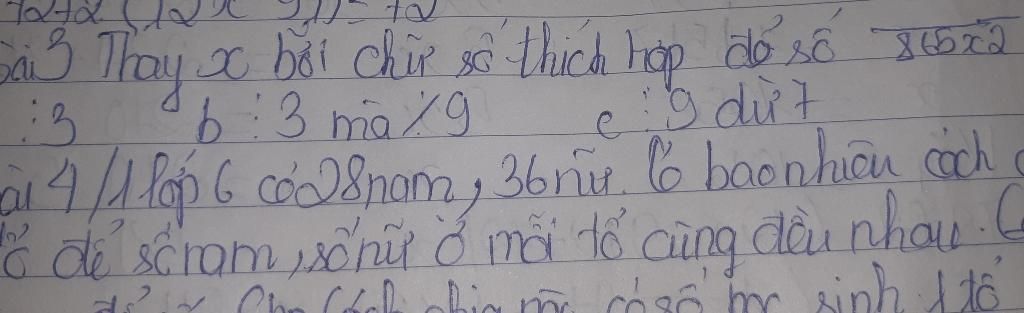 Bài 3 Thay x bởi chữ số thích hợp để số 865x2
:3 b :3 mà ⋮̸ 9 c :9 dư 7
ài 4/1 lớp 6 có 28 nam, 36 nữ. Có bao nhiêu cách
tổ để số nam, số nữ ở mỗi tổ cũng đều nhau.
có số học sinh 1 tổ